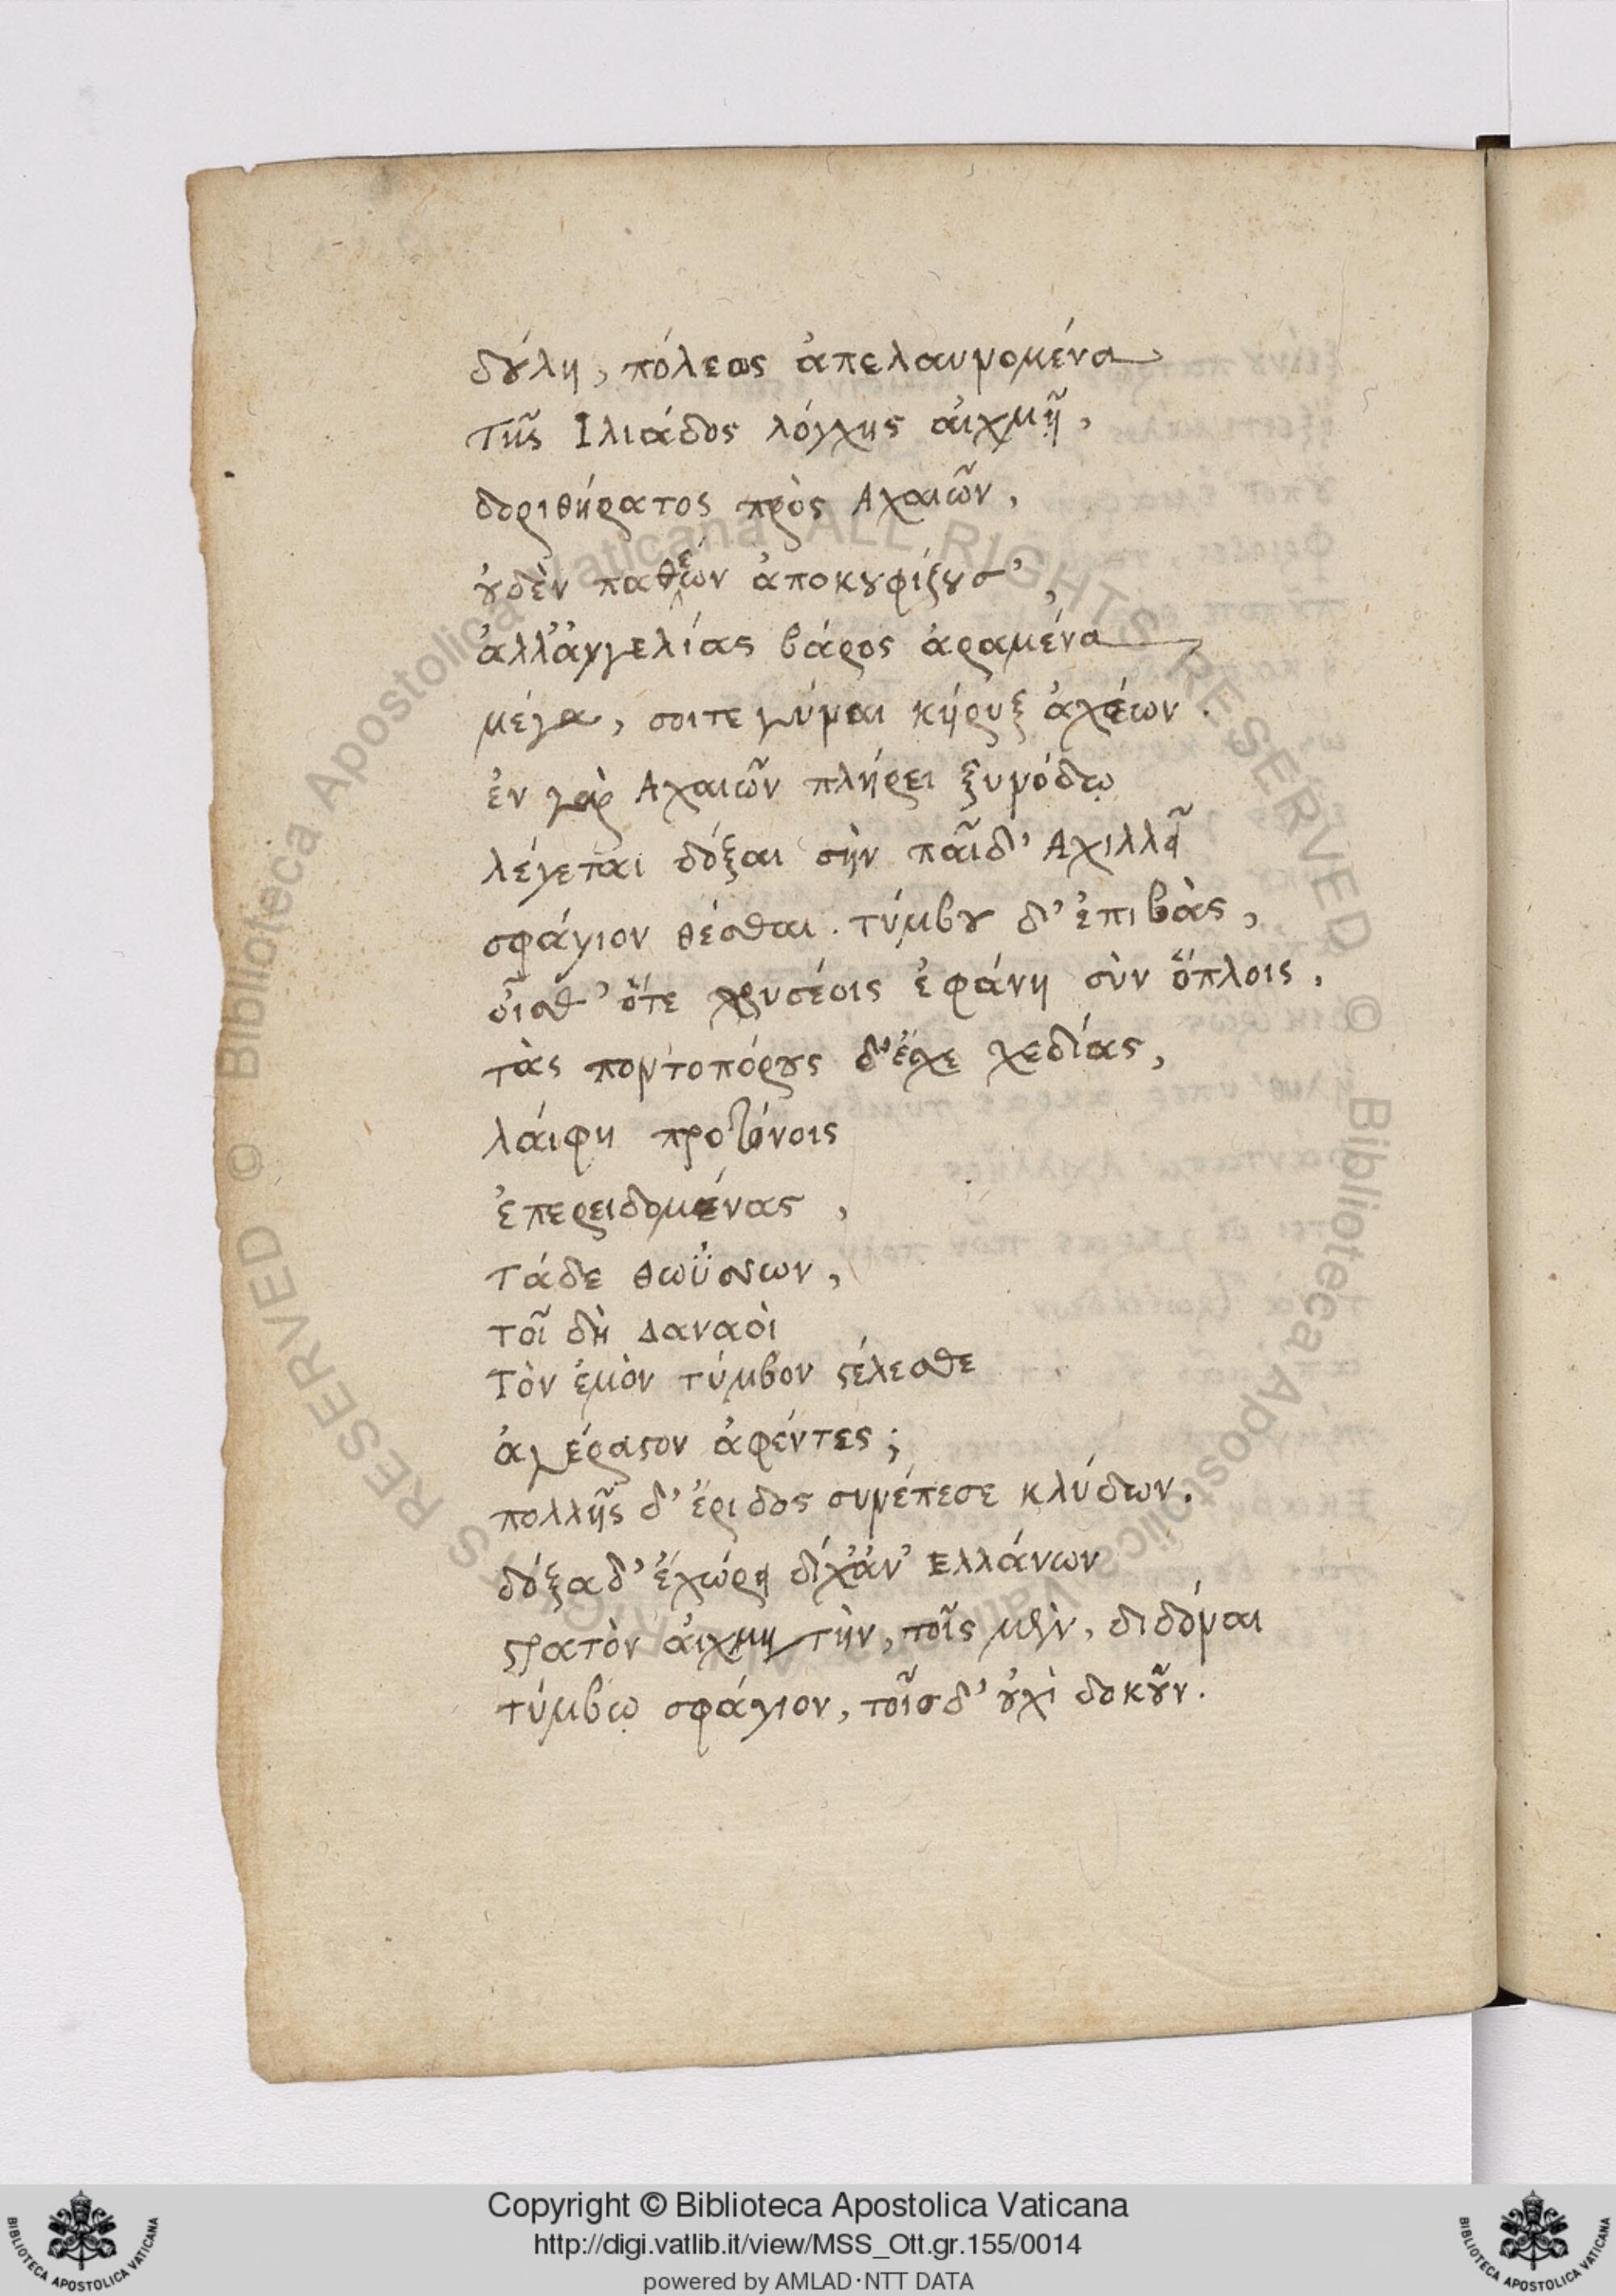 δούλη, πόλεως ἀπελαυνομένα
Τῆς Ιλιάδος λόγχης αἰχμῇ,
δοριθήρατος πρὸς Αχαιῶν,
οὐδὲν παθέων ἀποκουφίζουσ',
ἀλλ' ἀγγελίας βάρος ἀραμένα
μέγα, σοιτε γύναι κήρυξ ἀχέων.
ἐν γὰρ Αχαιῶν πλήρει ξυνόδῳ
λέγεται δόξαι σὴν παῖδ' Αχιλλεῖ
σφάγιον θέσθαι. τύμβου δ' ἐπιβὰς,
οἶσθ' ὅτε χρυσέοις ἐφάνη σὺν ὅπλοις.
τὰς ποντοπόρους δ' ἔσχε σχεδίας,
λάιφη προτόνοις
ἐπερειδομένας,
τάδε θωΰσσων,
τοῖ δὴ Δαναοὶ
Τὸν ἐμὸν τύμβον στέλεσθε
ἀγέραστον ἀφέντες;
πολλῆς δ' ἔριδος συνέπεσε κλύδων.
δόξα δ' ἐχώρη δίχ' ἀν' Ελλάνων
στρατὸν αἰχμητὴν, τοῖς μὲν, διδόναι
τύμβῳ σφάγιον, τοῖσδ' οὐχὶ δοκοῦν.
Copyright © Biblioteca Apostolica Vaticana
http://digi.vatlib.it/view/MSS_Ott.gr.155/0014
powered by AMLAD·NTT DATA
BIBLIOTECA APOSTOLICA VATICANA
BIBLIOTECA APOSTOLICA VATICANA
© Biblioteca Apostolica Vaticana ALL RIGHTS RESERVED
© Biblioteca Apostolica Vaticana ALL RIGHTS RESERVED